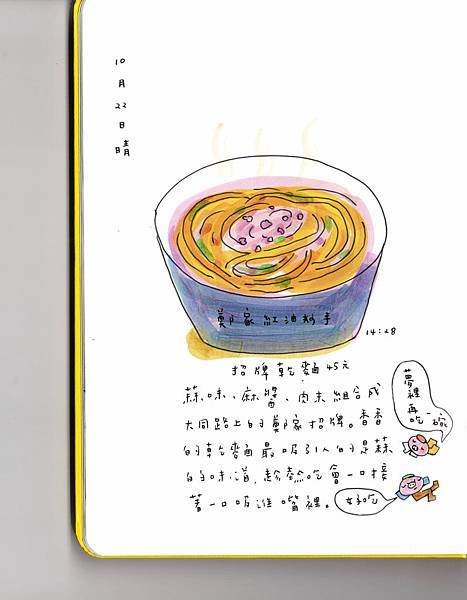 10月22日晴
鄭家紅油抄手
14:28
招牌乾麵45元
蒜味、麻醬、肉末組合成
大同路上的鄭家招牌。香香
的乾麵最吸引人的是蒜
的味道,趁熱吃會一口接
著一口吸進嘴裡。
夢裡再吃一碗
好吃